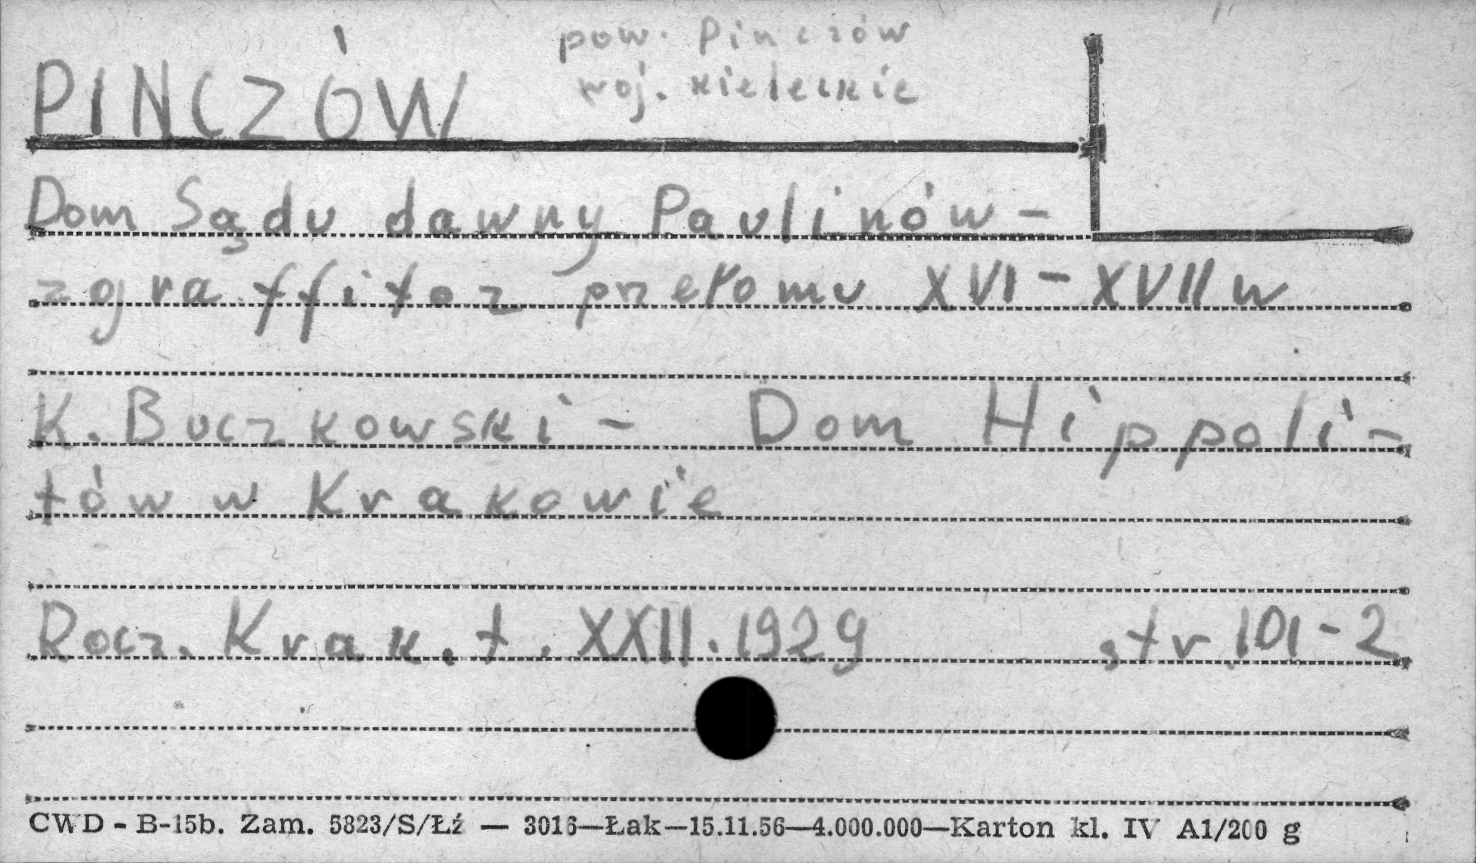 pow. Pinczów
PINCZÓW woj. kieleckie
Dom Sądu dawny Paulinów -
zgraffito z przełomu XVI - XVII w
K. Buczkowski - Dom Hippoli-
tów w Krakowie
Rocz. Krak. t. XXII. 1929 str. 101-2
CWD - B-15b. Zam. 5823/S/Łź — 3016—Łak—15.11.56—4.000.000—Karton kl. IV A1/200 g